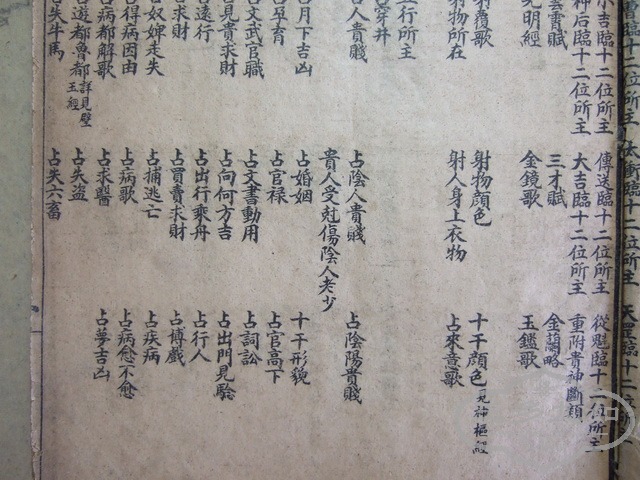 臨十二位所主 太衝臨十二位所主 天罡臨十二
小吉臨十二位所主 傳送臨十二位所主 從魁臨十二位所主
神后臨十二位所主 大吉臨十二位所主 重附貴神斷類
賦 三才賦 金蘭略
光明經 金鏡歌 玉鑑歌
射覆歌 射物顏色 十干顏色 一見神樞經
射物所在 射人身上衣物 占來意歌
五行所主
穿井
占人貴賤 占陰人貴賤 占陰陽貴賤
貴人受尅傷陰人老少
月下吉凶 占婚姻 十干形貌
占孕育 占官祿 占官高下
占文武官職 占文書動用 占詞訟
占見貴求財 占向何方吉 占出門見驗
占遠行 占出行乘舟 占行人
占求財 占買賣求財 占博戲
占奴婢走失 占捕逃亡 占疾病
占得病因由 占病歌 占病愈不愈
占病都解歌 占求醫 占夢吉凶
占遊都魯都 詳見壁玉經 占失盜
占失牛馬 占失六畜